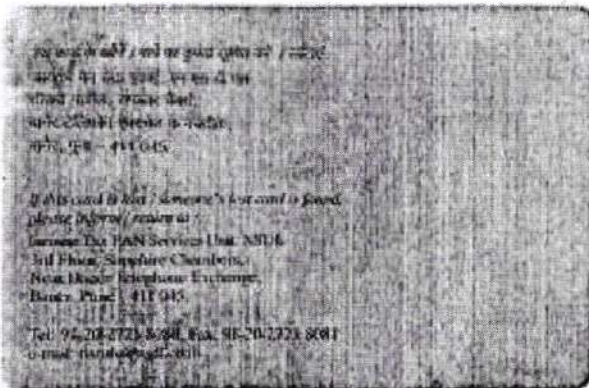 इस कार्ड के खोने / पाने पर कृपया सूचित करें / लौटाएं
आयकर पैन सेवा इकाई, एन एस डी एल
तीसरी मंजिल, सफायर चेंबर्स,
बानेर टेलिफोन एक्सचेंज के नजदीक,
बानेर, पुना - 411 045
If this card is lost / someone's lost card is found,
please inform / return to :
Income Tax PAN Services Unit, NSDL
3rd Floor, Sapphire Chambers,
Near Baner Telephone Exchange,
Baner, Pune - 411 045
Tel: 91-20-2721 8080, Fax: 91-20-2721 8081
e-mail: